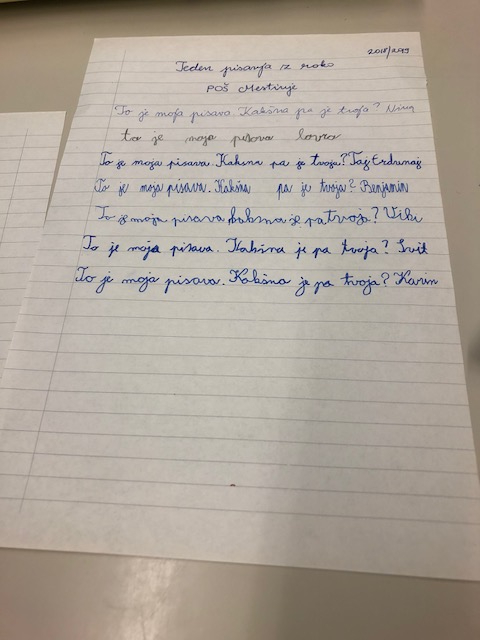 2018/2019
Teden pisanja z roko
POŠ Mestinje
To je moja pisava Kakšna pa je tvoja? Nina
to je moja pisava lovro
To je moja pisava. Kakšna pa je tvoja? Taj
To je moja pisava. Kakšna pa je tvoja? Benjamin
To je moja pisava kakšna je pa tvoja? Viki
To je moja pisava. Kakšna je pa tvoja? Svit
To je moja pisava. Kakšna je pa tvoja? Karin